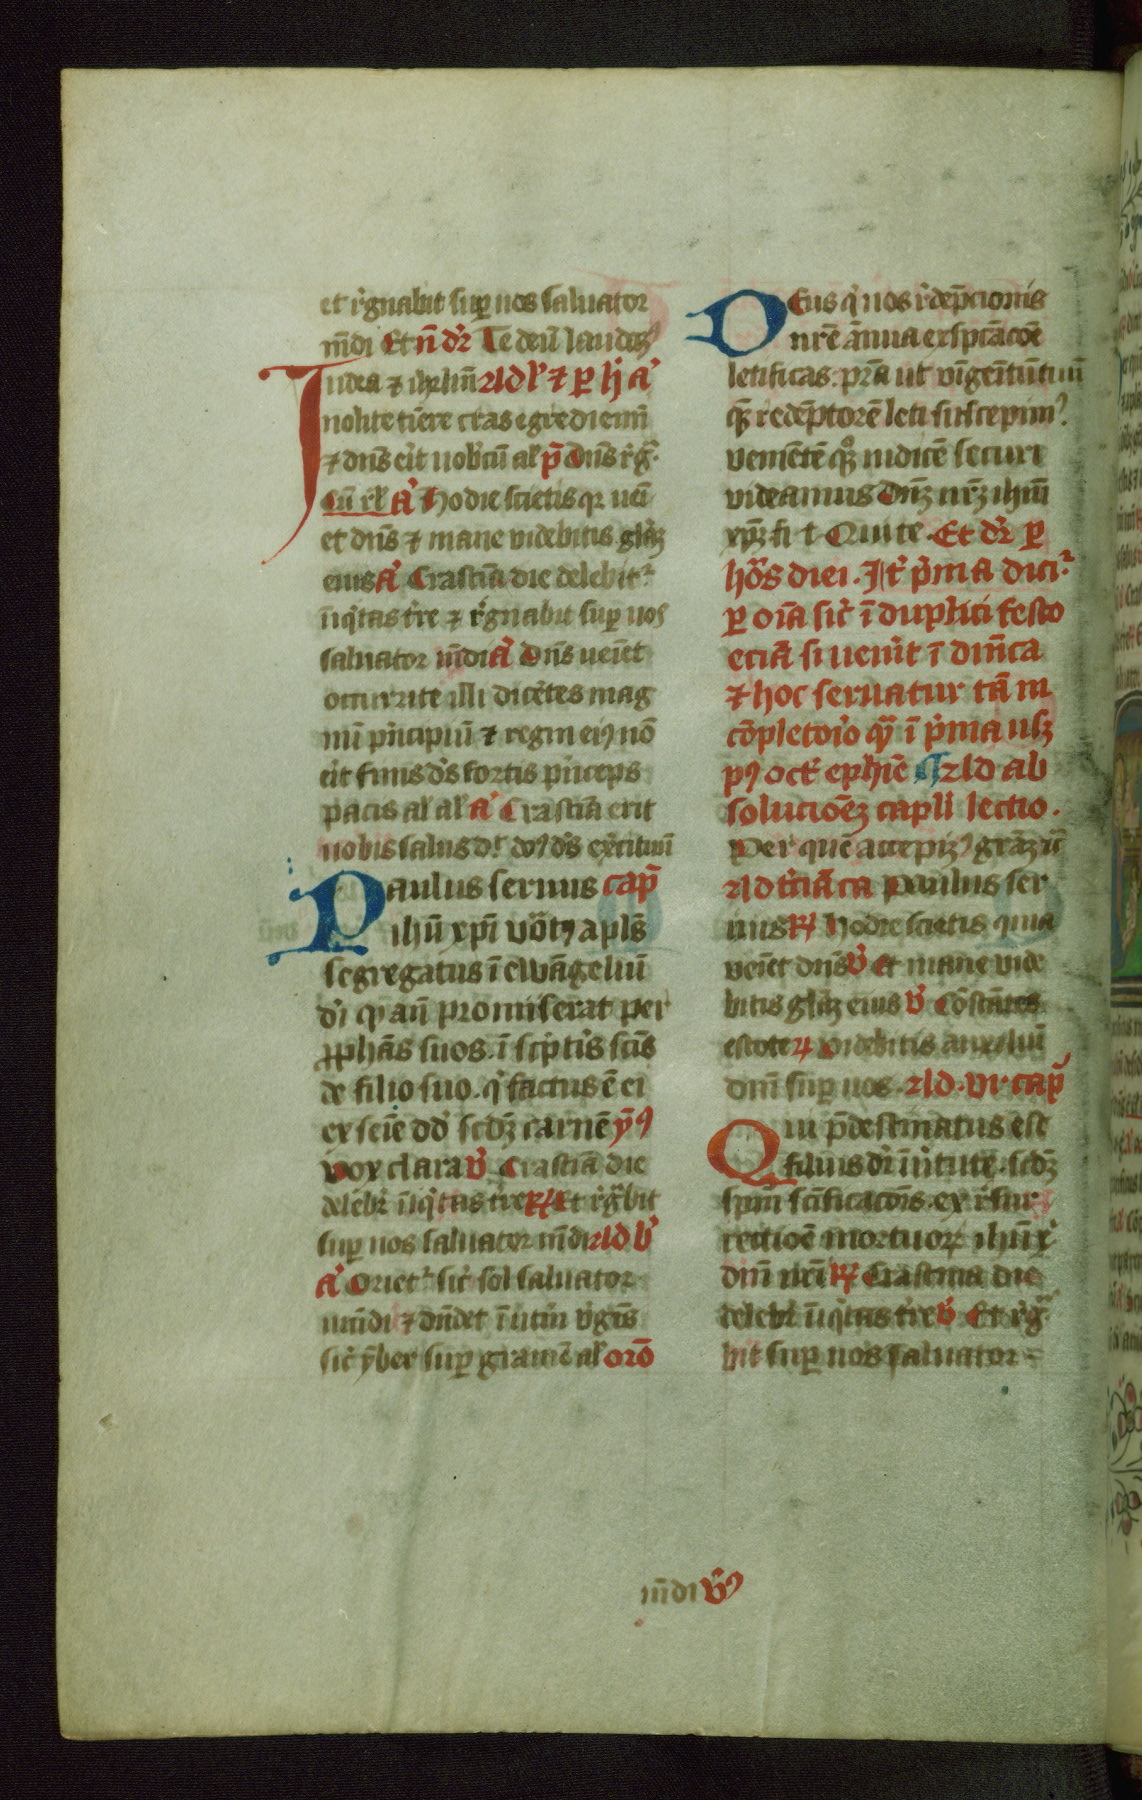 et rͥgnabit suꝑ nos saluator
mūdi Et nͫ dͬ Te deū laudaꝰ
Iudea ⁊ ihrlm̄ Ad lˀ ⁊ ꝑ h̄ a͛
nolite tīere cras egrediemī
⁊ dn̄s erit uobcū al p̄ Dn̄s rͥgͣ
Cū rl̄ a͛ Hodie scietis qꝛ ueīt
et dn̄s ⁊ mane videbitis glīaꝫ
eius a͛ Crastīa die delebitͬ
īiqͥtas tr̄e ⁊ rͥgnabit suꝑ nos
saluator mūdi a͛ Dn̄s ueīet
occurrite illi dicētes mag
nū pͥncipiū ⁊ regni eiꝰ nō
erit finis dˢ fortis pͥnceps
pacis al al a͛ Crastīa erit
uobis salus dt dn̄s dˢ exͤcituū
Paulus seruus cap̄
ihū xp̄i vocͣtꝰ apl̄s
segregatus ī ewāgeliū
dͥ qͦ an̄ promiserat per
ꝓphās suos ī scͥpturis scīs
de filio suo qͥ factus ē ei
ex seīe dd̄ scdꝫ carnē ȳꝰ
vox clara v̄ Crastīa die
delebit̄ īiqͥtas tr̄e ꝶ Et rͥgͣbit
suꝑ nos saluator mūdi Ad bˀ
a͛ Orietͬ sic̄ sol saluator
mūdi ⁊ dn̄det ī utm̄ vͥgīs
sic̄ ȳber suꝑ gramē al orō
Deus qͥ nos rͤdēpcionis
nr̄e ānua exspcͣtacōe
letificas. pr̄a ut vīgenītum tuū
qͣꝫ redēptorē leti suscepimꝰ
venientē qͦꝫ iudicē securi
videamus Dn̄ꝫ nr̄ꝫ ihm̄
xp̄ꝫ fi t Qui te. Et dͬ ꝑ
hōs diei. It̄ pͥma dicitͬ
ꝑ oīa sic̄ ī duplici festo
eciā si uenit̄ ī dnī̄ca
⁊ hoc seruatur tā in
cōpletorͦ qͣ ī pͥma usꝫ
pꝰ oct̄ ephīe ¶ Ad ab
solucioēꝫ capli lectio.
Per quē accepimꝰ grāꝫ ⁊c̄
Ad tͨciā ca Paulus ser
uus ꝶ Hodie scietis quia
veīet dn̄s v̄ Et mane vide
bitis glīaꝫ eius v̄ Cōstātes
estote ꝶ Videbitis auxiliū
dn̄i suꝑ uos. Ad. vi. cap̄
Qui pͤdestinatus est
filius dͥ ī vͥtute. scdꝫ
spm̄ scīficacōis. ex rͤsur
rectioē mortuoꝝ ihū xͥ
dn̄i nr̄i ꝶ Crastina die
delebit̄ īiqͥtas tr̄e v̄ Et rͥgͣ
bit suꝑ nos saluator
mūdi v̄ꝰ